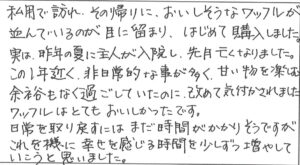 私用で訪れ、その帰りに、おいしそうなワッフルが
並んでいるのが目に留まり、はじめて購入しました。
実は、昨年の夏に主人が入院し、先月亡くなりました。
この1年近く、非日常的な事が多く、甘い物を楽しむ
余裕もなく過ごしていたのに、改めて気付かされました
ワッフルはとてもおいしかったです。
日常を取り戻すにはまだ時間がかかりそうですが
これを機に幸せを感じる時間を少しずつ増やして
いこうと思いました。